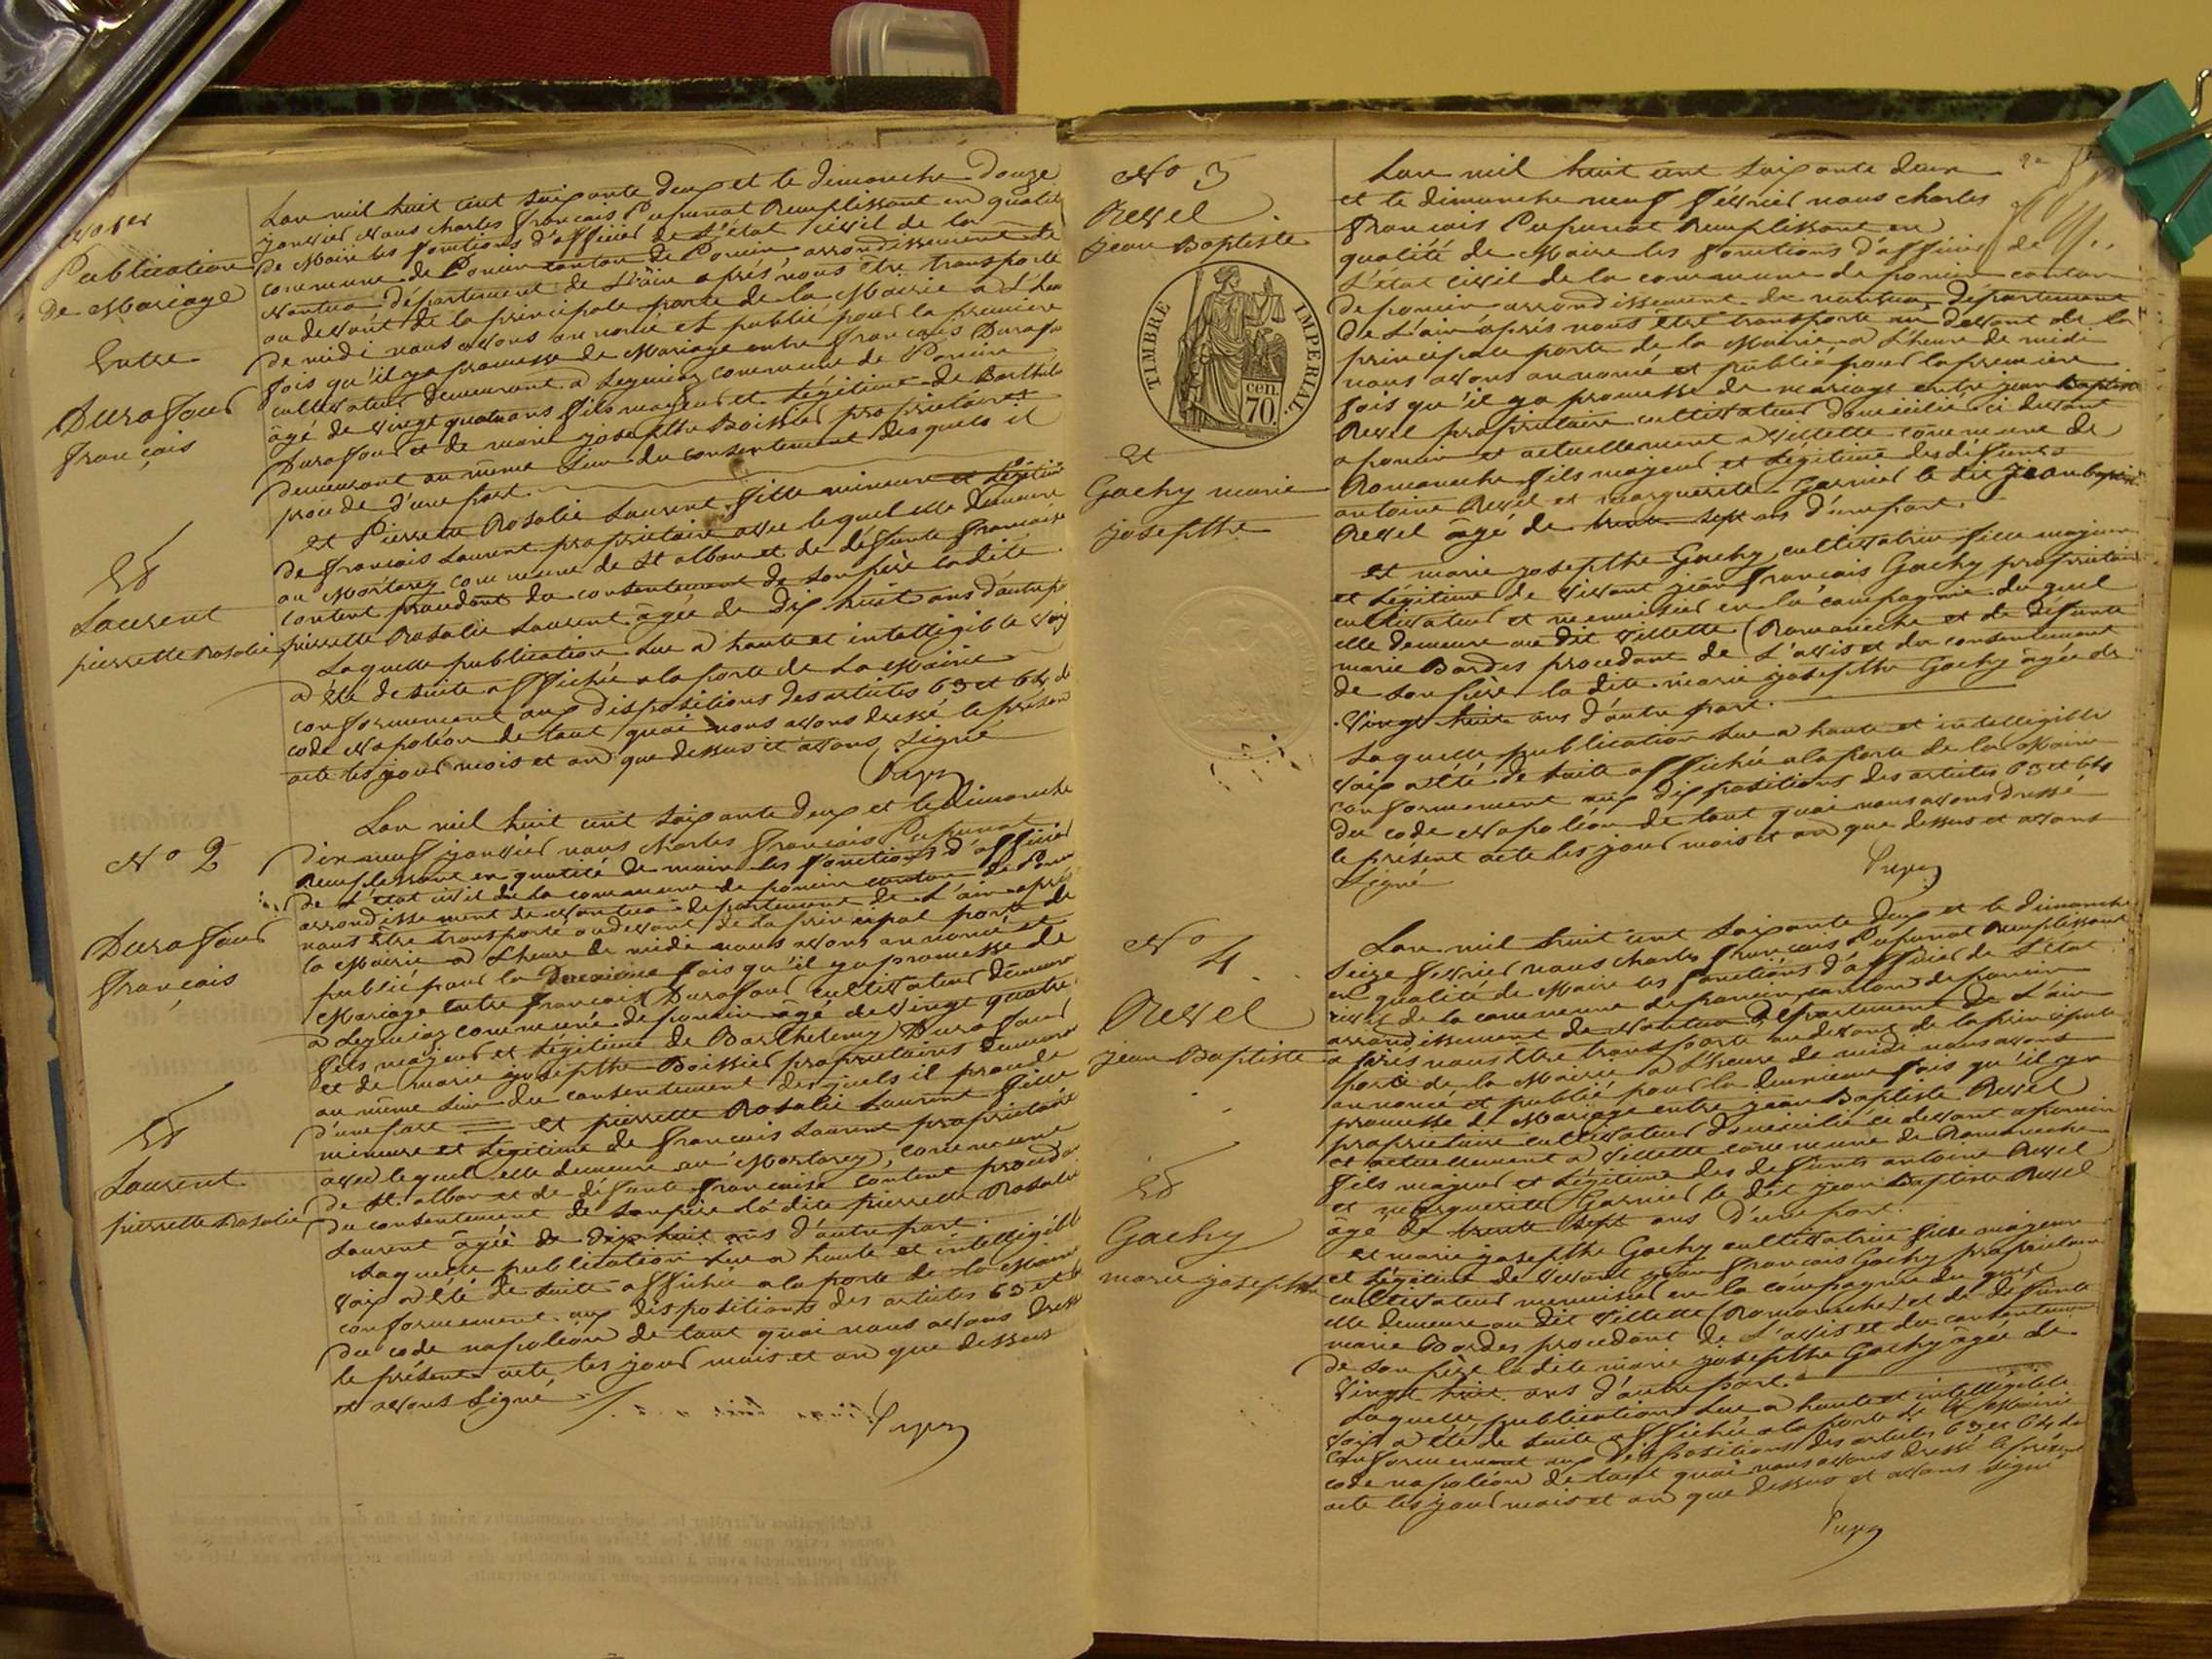 No 1er
Publication
De Mariage
Entre
Durafour
françois
Et
Laurent
pierrette Rosalie
Lan mil huit cent soixante deux et le dimanche Douze
janvier nous charles françois Pupunat Remplissant en qualité
De Maire les fonctions d'officier de L'état civil de la
commune de Poncin canton de Poncin arrondissement de
Nantua département de L'ain après nous être transporté
au devant de la principale porte de la Mairie a L'heu
De midi nous avons annoncé et publié pour la premiere
fois qu'il ya promesse de Mariage entre françois Durafou
cultivateur demeurant a Leymiaz commune de Poncin
âgé de vingt quatre ans fils majeur et Légitime de Barthele
Durafour et de marie josephte Boissier propriétaires
demeurant au même lieu du consentement desquels il
procède d'une part.
et Pierrette Rosalie Laurent fille mineure et Légitim
de françois Laurent propriétaire avec lequel elle demeure
au Mortarey commune de St alban et de défunte françoise
Content procedant du consentement de son père ladite
pierrette Rosalie Laurent âgée de Dix huit ans d'autre pa
Laquelle publication Lue a haute et intelligible voix
a été de suite affichée a la porte de La Mairie
conformement aux dispositions des articles 63 et 64 du
code Napoléon de tout quoi nous avons dressé le présent
acte les jour mois et an que dessus et avons signé
No 2
Durafour
françois
Et
Laurent
pierrette Rosalie
Lan mil huit cent soixante deux et le Dimanche
dix neuf janvier nous charles françois Pupunat
Remplissant en qualité de maire les fonctions d'officier
de L'état civil de la commune de poncin canton de Ponci
arrondissement de Nantua département de L'ain apré
nous être transporté au devant de la principal porte de
la Mairie a L'heure de midi nous avons annoncé et
publié pour la Deuxieme fois qu'il ya promesse de
Mariage entre françois Durafour cultivateur demeura
a Leymiaz commune de poncin âgé de vingt quatre
fils majeur et Légitime de Barthelemy Durafour
et de marie josephte Boissier propriétaires demeura
au même lieu du consentement desquels il procede
d'une part et pierrette Rosalie Laurent fille
mineure et Légitime de françois Laurent propriétaire
avec lequel elle demeure au Mortarey, commune
de St. alban et de défunte françoise Content proceda
Du consentement de son père la dite pierrette Rosalie
Laurent âgée de dix huit ans d'autre part.
Laquelle publication Lue a haute et intelligibl
voix a été de suite affichée a la porte de la Mairi
conformement aux dispositions des articles 63 et 6
du code napoléon de tout quoi nous avons dress
le présent acte les jour mois et an que dessus
et avons signé
No 3
Revel
jean Baptiste
TIMBRE IMPERIAL.
cen.
70.
Et
Gachy marie
josephte
2e
Lan mil huit cent soixante deux
et le dimanche neuf février nous charles
françois Pupunat Remplissant en
qualité de Maire les fonctions d'officier de
L'état civil de la commune de poncin canton
de poncin arrondissement de nantua, département
De L'ain après nous être transporté au devant de la
principale porte de la Mairie a L'heure de midi
nous avons annoncé et publié pour la premiere
fois qu'il ya promesse de mariage entre jean Baptiste
Revel propriétaire cultivateur domicilié ci devant
a poncin et actuellement a villette commune de
Romaneche fils majeur et Légitime des défunts
antoine Revel et marguerite Garnier le dit jean baptiste
Revel âgé de trente sept ans d'une part.
et marie josephte Gachy, cultivatrice fille majeure
et Légitime de vivant jean françois Gachy propriétaire
cultivateur et menuisier en la compagnie du quel
elle demeure au dit villette (Romaneche et de défunte
marie Bordes procedant de L'avis et du consentement
de son père la dite marie josephte Gachy âgée de
vingt huit ans d'autre part.
Laquelle publication Lue a haute et intelligible
voix a été de suite affichée a la porte de la Mairie
conformement aux dispositions des articles 63 et 64
Du code Napoléon de tout quoi nous avons dressé
le présent acte les jour mois et an que dessus et avons
signé
No 4
Revel
jean Baptiste
Et
Gachy
marie josephte
Lan mil huit cent soixante deux et le dimanche
seize fevrier nous charles françois Pupunat Remplissant
en qualité de Maire les fonctions d'officier de L'état
civil de la commune de poncin, canton de poncin
arrondissement de Nantua département de L'ain
après nous être transporté au devant de la principale
porte de la Mairie a L'heure de midi nous avons
annoncé et publié pour la deuxieme fois qu'il ya
promesse de Mariage entre jean Baptiste Revel
propriétaire cultivateur domicilié ci devant a poncin
et actuellement a villette commune de Romaneche
fils majeur et Légitime des defunts antoine Revel
et marguerite Garnier le dit jean Baptiste Revel
âgé de trente sept ans d'une part.
et marie josephte Gachy cultivatrice fille majeure
et Légitime de vivant jean françois Gachy propriétaire
cultivateur menuisier en la compagnie du quel
elle demeure au dit villette (Romaneche) et de défunte
marie Bordes procedant de L'avis et du consentement
de son père la dite marie josephte Gachy âgée de
vingt huit ans d'autre part.
Laquelle publication Lue a haute et intelligible
voix a été de suite affichée a la porte de la Mairie
conformement aux dispositions des articles 63 et 64 du
code napoléon de tout quoi nous avons dressé le présent
acte les jour mois et an que dessus et avons signé